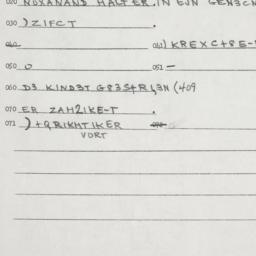 020 NOXANAND HALTER, IN EJN GEN3CN
030 ) ZIFCT .
040 041) KREXC+8E-
050 0 051 -
060 D3 KIND3T G83S+R
070 ER ZAH2IKE-T .
072 )+QRIKHTIKER
VORT